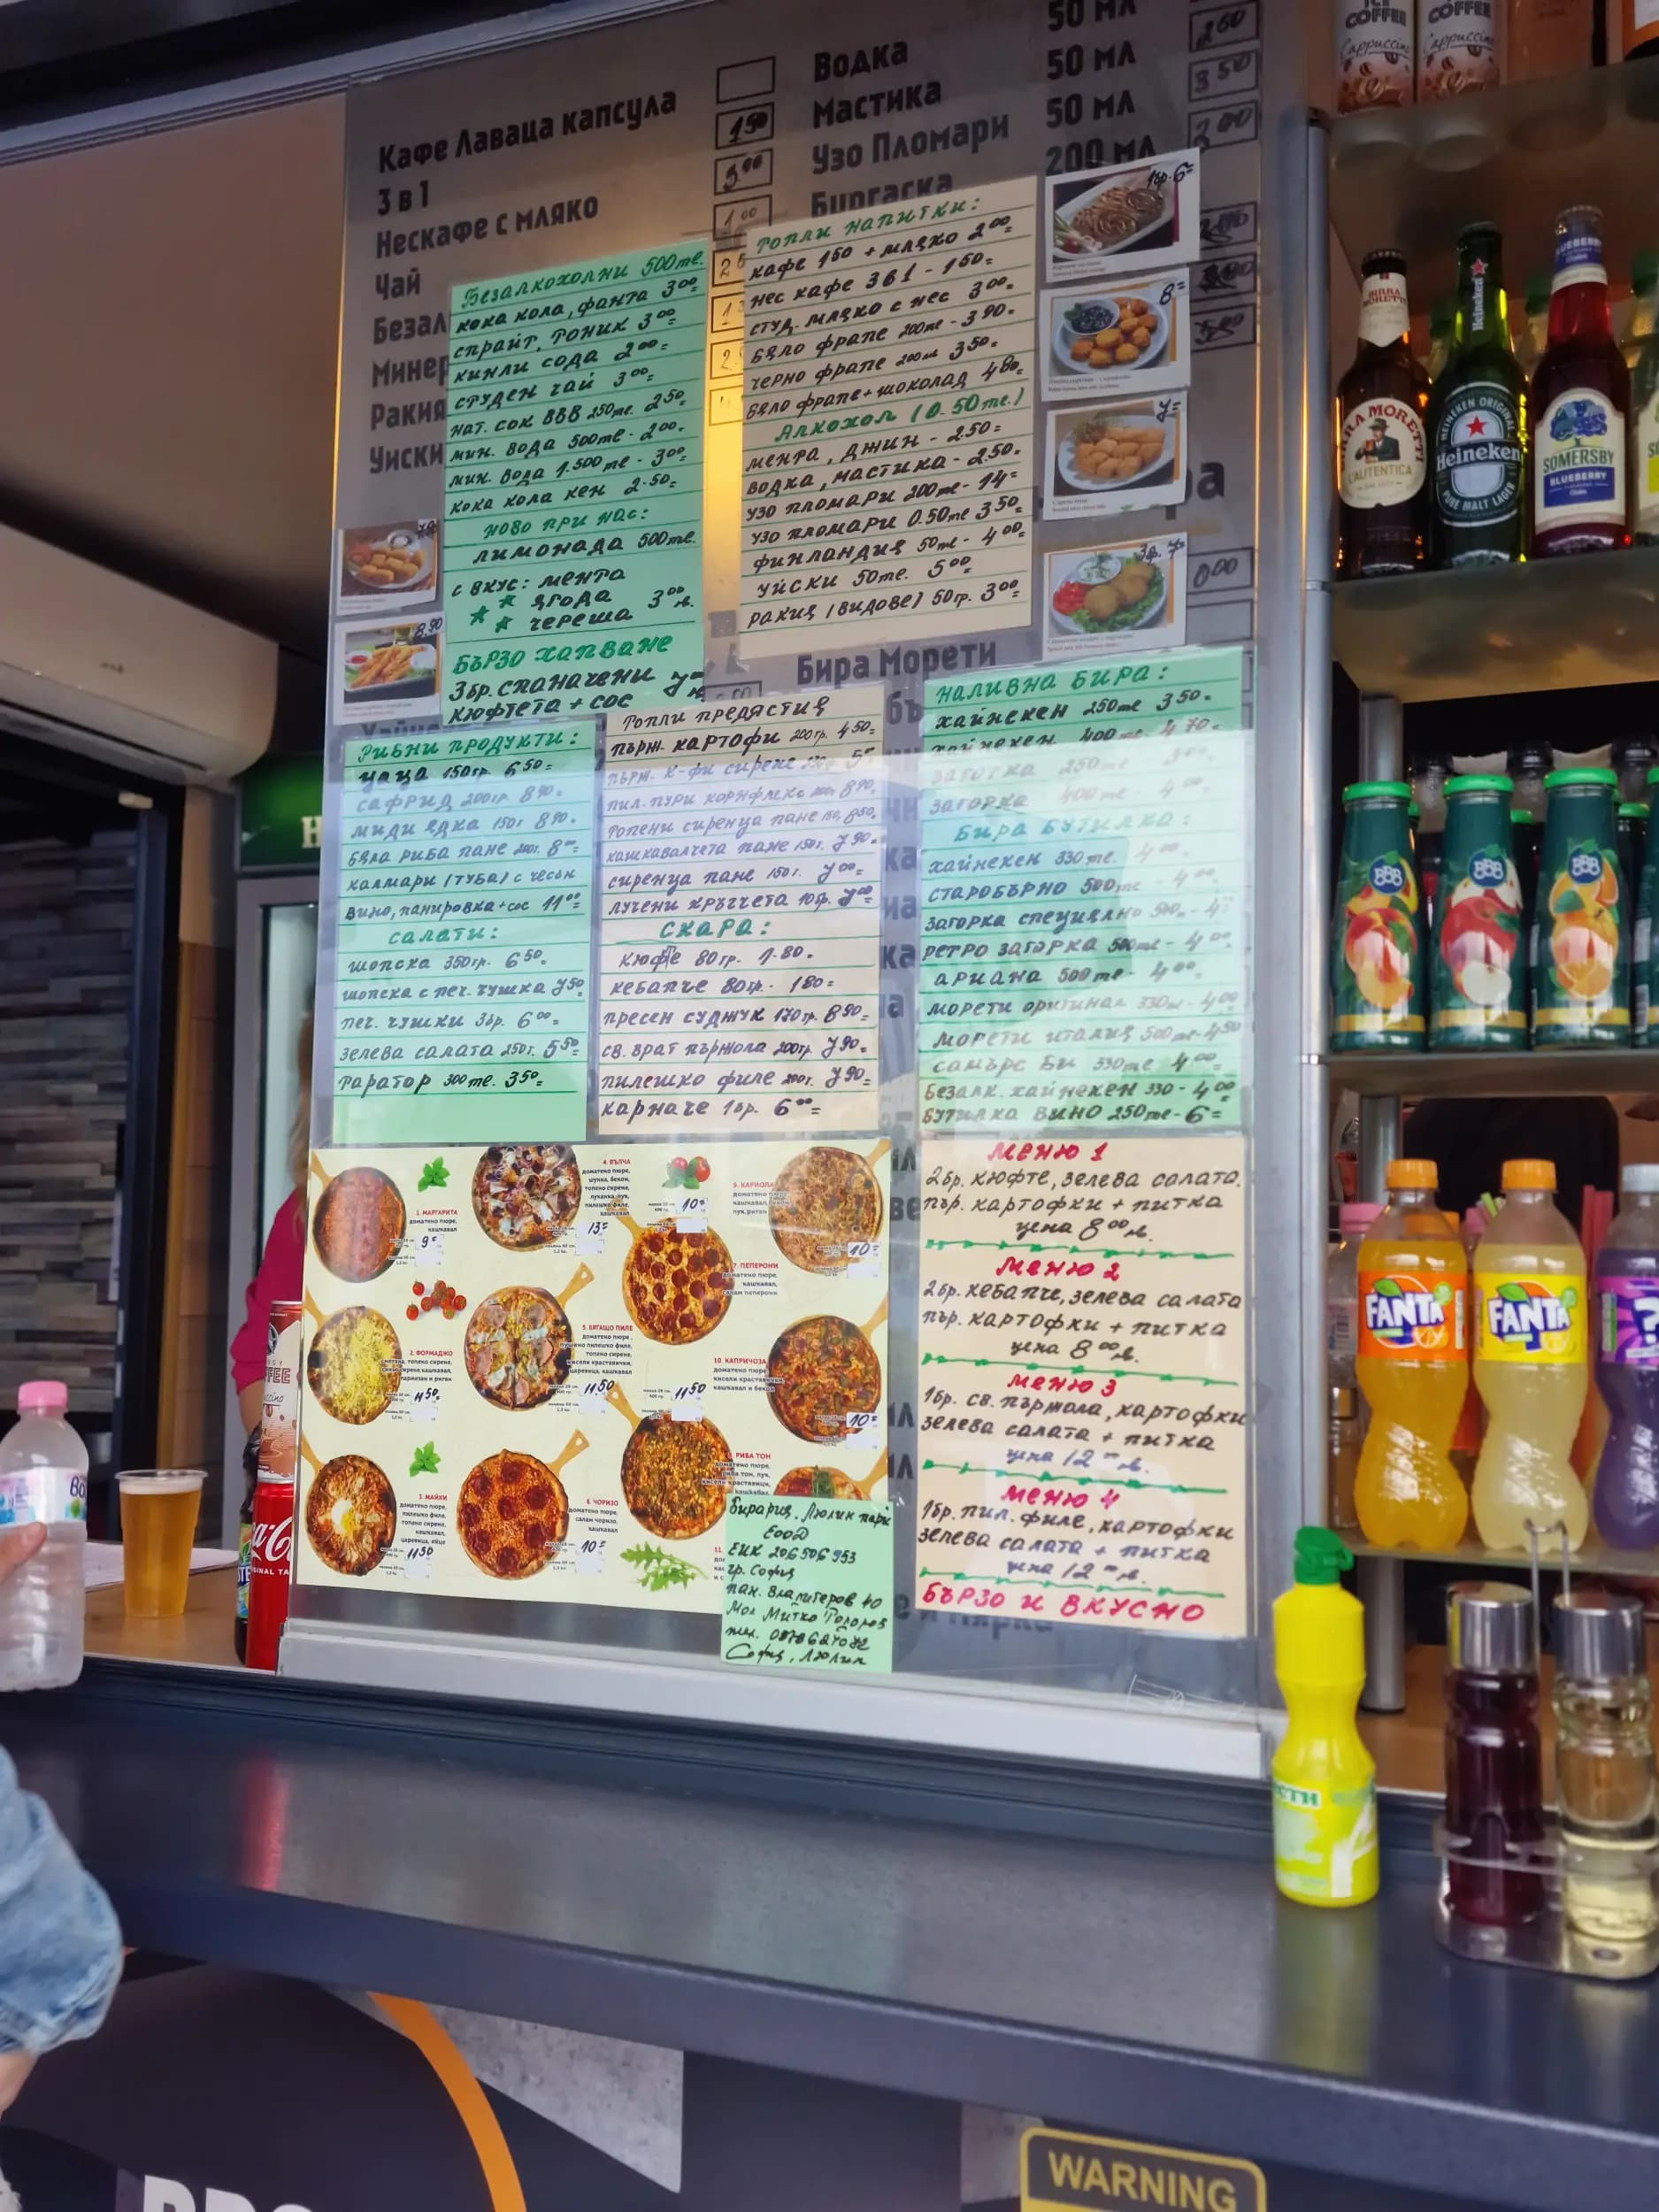 Кафе Лаваца капсула
3 в 1
150
Нескафе с мляко
3 00
Чай
1 00
Безал
Минер
Ракия
Уиски
Водка
50 мл
Мастика
50 мл
3 50
Узо Пломари
50 мл
200 мл
Бира Морети
Безалкохолни 500ml.
кока кола, фанта 3 00=
спрайт, тоник 3 00=
кинли сода 2 00=
студен чай 3 00=
нат. сок BBB 250ml. 2 50=
мин. вода 500ml - 2 00=
мин. вода 1.500ml - 3 00=
кока кола кен 2.50=
ново при нас:
лимонада 500ml.
с вкус: мента
ягода 3 00 лв.
череша
Бързо хапване
3бр. спаначени 7=
кюфтета + сос
Топли напитки:
кафе 150 + мляко 2 00=
нес кафе 3в1 - 150=
студ. мляко с нес 3 00=
бяло фрапе 200ml - 3 90=
черно фрапе 200ml 3 50=
бяло фрапе + шоколад 4 80=
Алкохол (0.50ml.)
мента, джин - 2.50=
водка, мастика - 2.50=
узо пломари 200ml - 14=
узо пломари 0.50ml 3 50=
финландия 50ml - 4 00=
уйски 50ml. 5 00=
ракия (видове) 50гр. 3 00=
1бр. 6=
8=
7=
3бр. 7=
8,90
Рибни продукти:
цаца 150гр. 6 50=
сафрид 200гр. 8 90=
миди ядка 150г 8 90=
бяла риба пане 200г. 8 00=
калмари (туба) с чесън
вино, панировка + сос 11 00=
салати:
шопска 350гр. 6 50=
шопска с печ. чушка 7 50
печ. чушки 3бр. 6 00=
зелева салата 250г. 5 50=
таратор 300ml. 3 50=
Топли предястия
пърж. картофи 200гр. 4 50=
пърж. к-фи сирене
пил. пури корнфлекс 8 90=
топени сиренца пане 150, 8 50=
кашкавалчета пане 150г. 7 90=
сиренца пане 150г. 7 00=
лучени кръгчета 10бр. 7 00=
скара:
кюфте 80гр. 1.80=
кебапче 80гр. - 180=
пресен суджук 170гр. 8 90=
св. врат пържола 200гр. 7 90=
пилешко филе 200г. 7 90=
карначе 1бр. 6 00=
Наливна бира:
хайнекен 250ml 3 50=
хайнекен 400ml 4 70=
загорка 250ml 3 00=
загорка 400ml - 4 00=
Бира бутилка:
хайнекен 330ml. 4 00=
старобърно 500ml - 4 00=
загорка специално 500ml - 4=
ретро загорка 500ml - 4 00=
ариана 500ml - 4 00=
морети оригинал 330ml - 4 00
морети италия 500ml - 4 50
самърс би 330ml 4 00=
безалк. хайнекен 330 - 4 00
бутилка вино 250ml - 6=
1. МАРГАРИТА
доматено пюре,
кашкавал
9=
4. ВЪЛЧА
доматено пюре,
шунка, бекон,
топено сирене,
луканка, лук,
пилешко филе,
кашкавал
13=
10=
9. КАРНОЛА
10=
7. ПЕПЕРОНИ
доматено пюре,
кашкавал,
салам пеперони
2. ФОРМАДЖО
11 50
5. БЯГАЩО ПИЛЕ
доматено пюре,
пушено пилешко филе,
топено сирене,
кисели краставички,
царевица, кашкавал
11 50
11 50
10. КАПРИЧОЗА
10=
3. МАЙКИ
доматено пюре,
пилешко филе,
топено сирене,
кашкавал,
царевица, яйце
11 50
6. ЧОРИЗО
доматено пюре,
салам чоризо,
кашкавал
10=
РИБА ТОН
доматено пюре,
риба тон, лук,
кисели краставички,
кашкавал
Бирария. Люлин парк
ЕООД
ЕИК 206506953
гр. София
Мол Митко Тодоров
София, Люлин
меню 1
2бр. кюфте, зелева салата.
пър. картофки + питка
цена 8 00 лв.
меню 2
2бр. кебапче, зелева салата
пър. картофки + питка
цена 8 00 лв.
меню 3
1бр. св. пържола, картофки
зелева салата + питка
цена 12 00 лв.
меню 4
1бр. пил. филе, картофки
зелева салата + питка
цена 12 00 лв.
БЪРЗО И ВКУСНО
COFFEE
Cappuccino
COFFEE
Cappuccino
BIRRA MORETTI
L'AUTENTICA
Heineken
HEINEKEN ORIGINAL
Heineken
PURE MALT LAGER
SOMERSBY
BLUEBERRY
BBB
BBB
BBB
FANTA
FANTA
WARNING